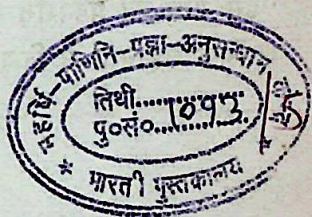 महर्षि-पाणिनि-प्रज्ञा-अनुसन्धान
तिथी..................
पु०सं०. 1093
* भारती पुस्तकालय *